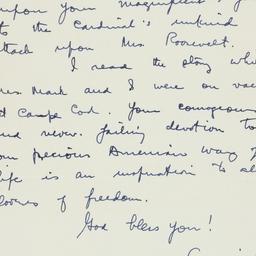 upon your magnificent
to the Cardinal's unkind
attack upon Mrs Roosevelt.
I read the story whi
res. Mark and I were on vac
at Cape Cod. Your courageous
and never failing devotion to
our precious American way of
life is an inspiration to al
lovers of freedom.
God bless you!